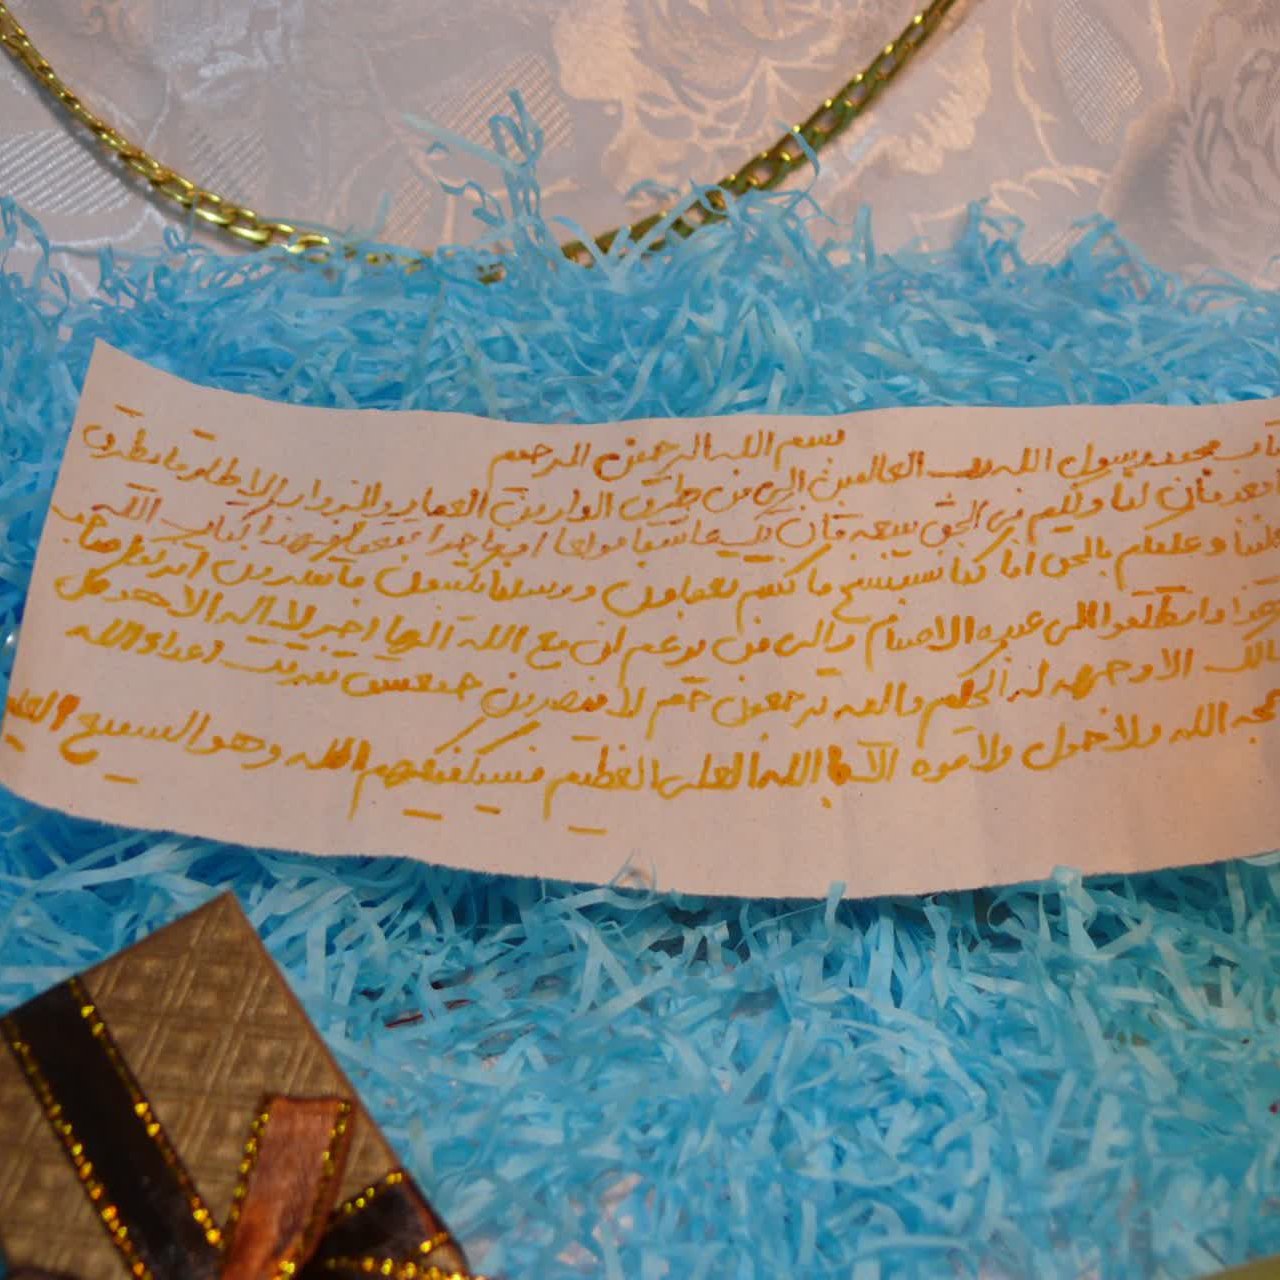 بسم الله الرحمن الرحيم
محمد رسول الله رب العالمين الى من طرق الدار من العمار والزوار الا طارقا يطرق
بعد فان لنا ولكم في الحق سعة فان تك عاشقا مولعا او فاجرا فهذا كتاب الله
علينا وعليكم بالحق انا كنا نستنسخ ما كنتم تعملون ورسلنا يكتبون ما تمكرون اتركوا صاحب
هذا وانطلقوا الى عبده الاصنام والى من يزعم ان مع الله الها اخر لا اله الا هو كل
هالك الا وجهه له الحكم واليه ترجعون حم لا ينصرون حمعسق تفرقت اعداء الله
حجه الله ولا حول ولا قوه الا بالله العلى العظيم فسيكفيكهم الله وهو السميع العليم